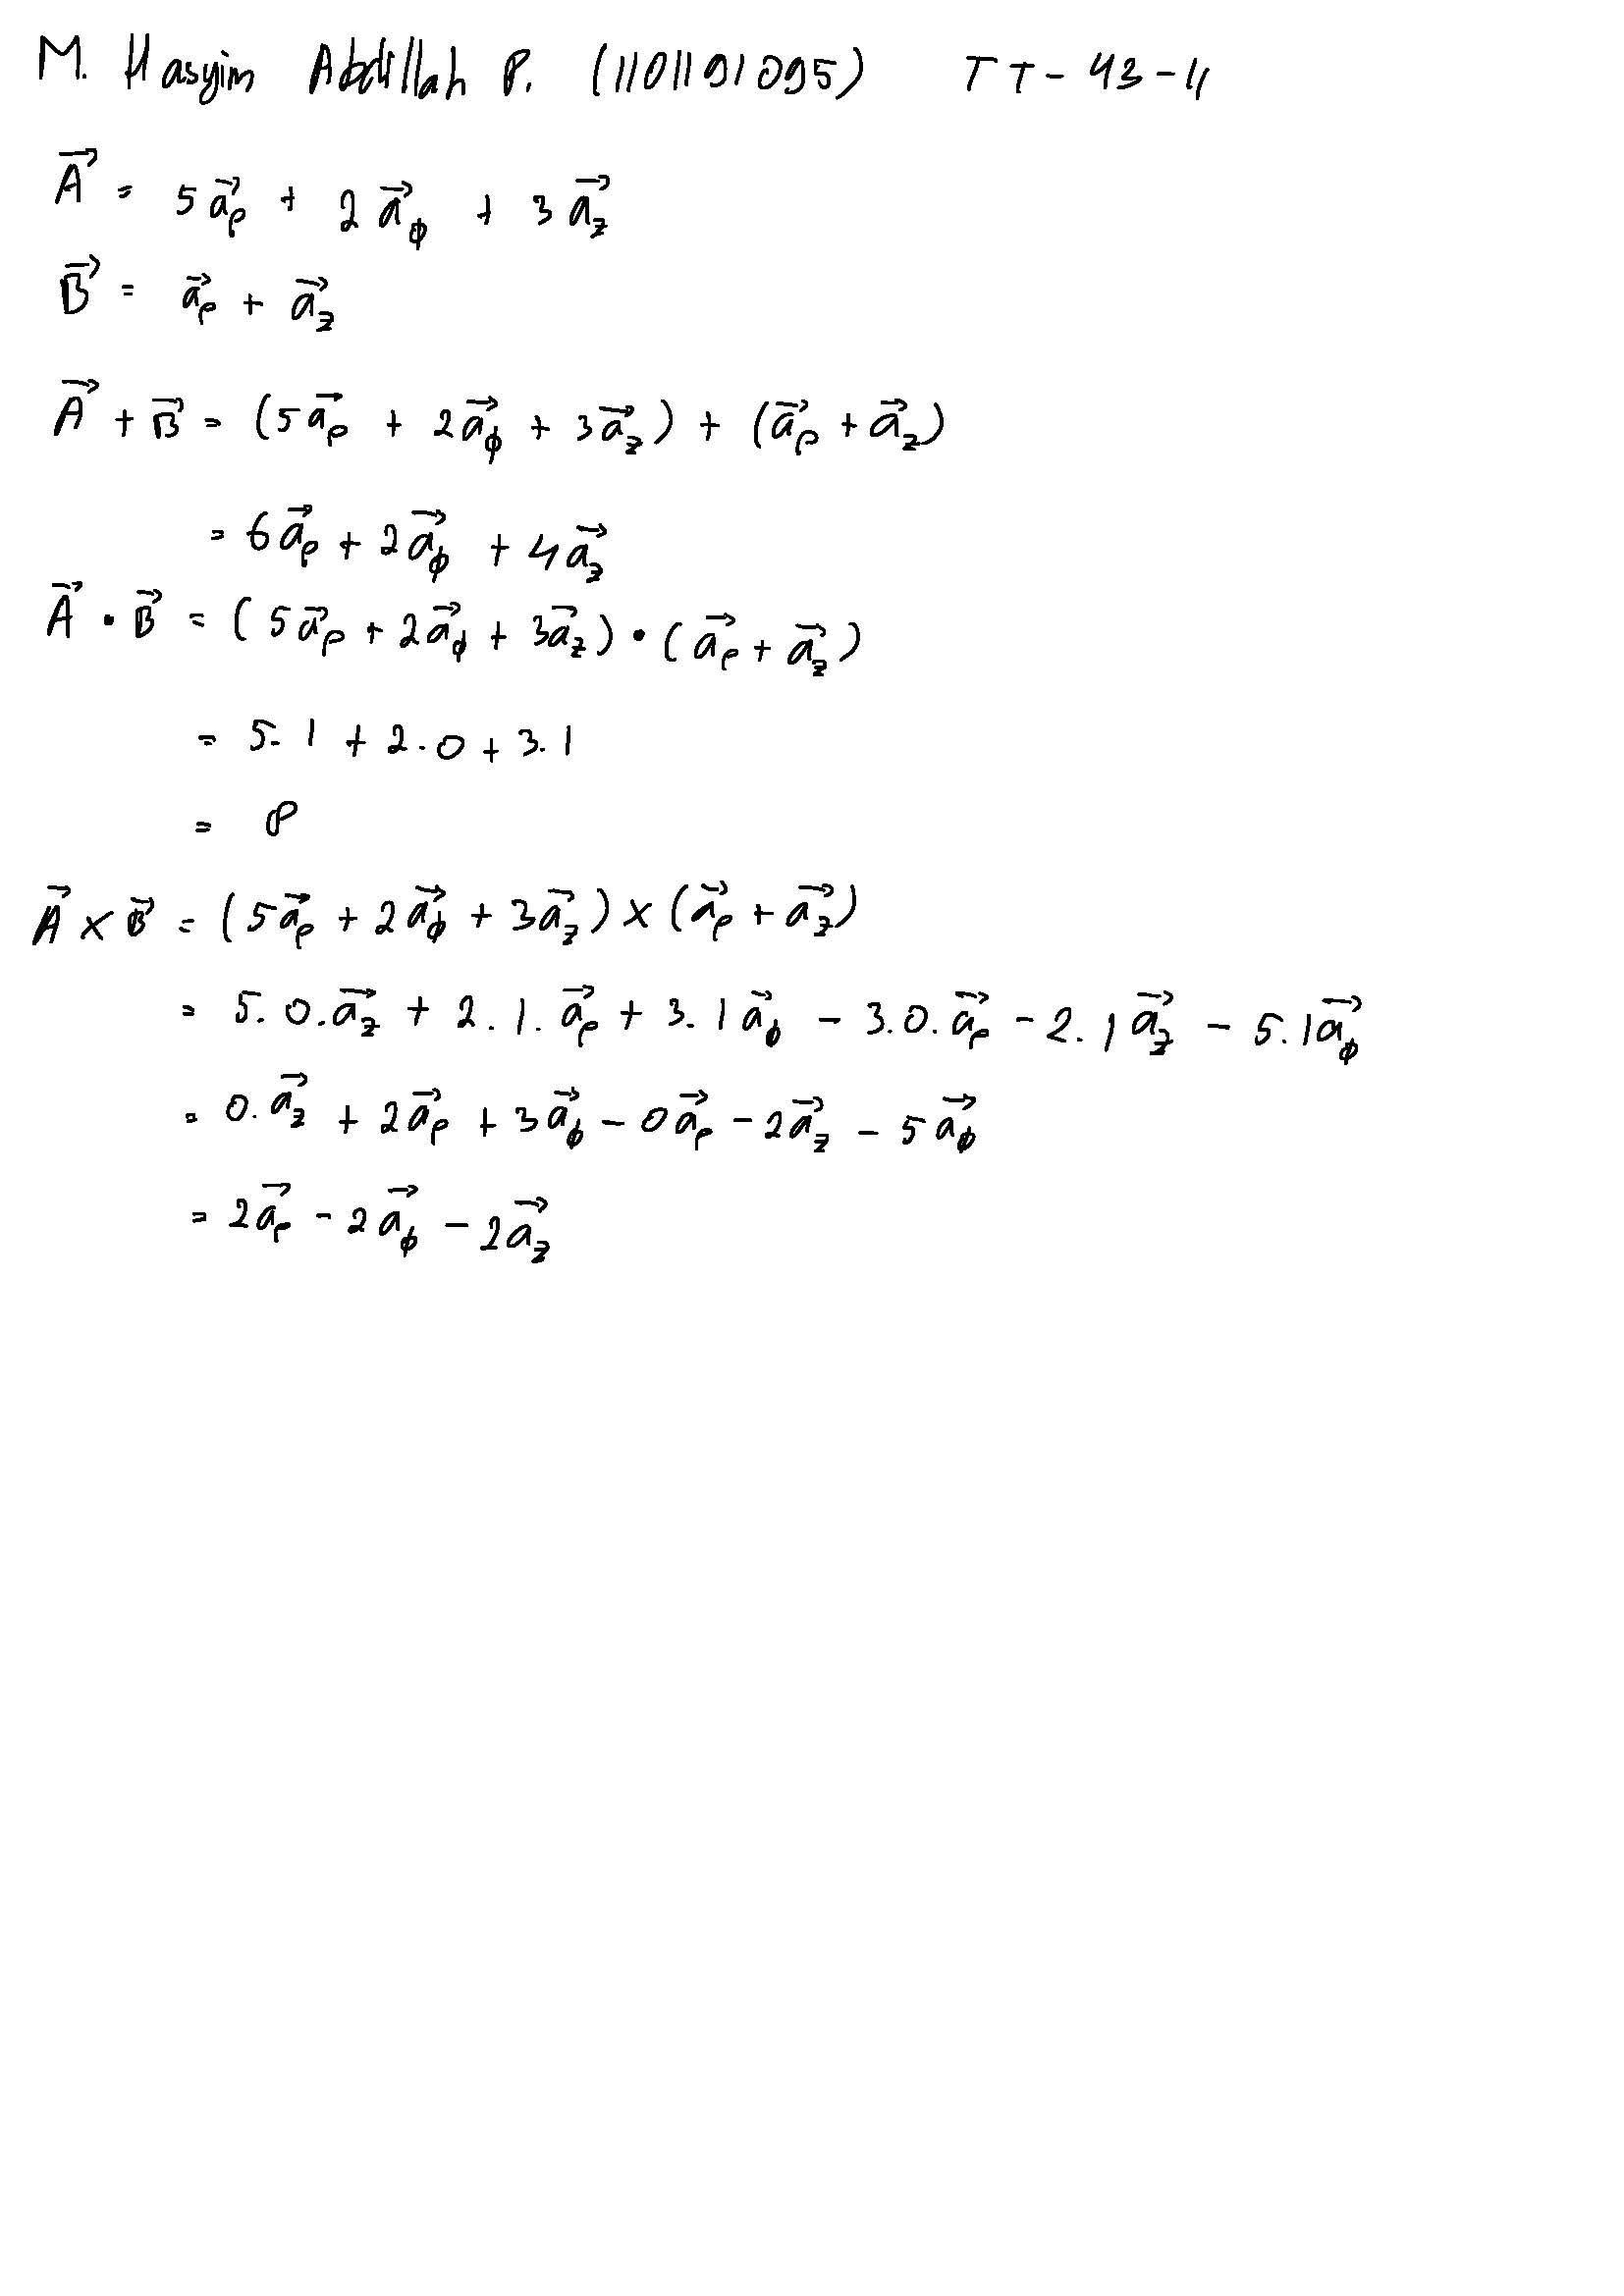 M. Hasyim Abdillah P. (1101191095) TT-43-11
A⃗ = 5a⃗ρ + 2a⃗ϕ + 3a⃗z
B⃗ = a⃗ρ + a⃗z
A⃗ + B⃗ = (5a⃗ρ + 2a⃗ϕ + 3a⃗z) + (a⃗ρ + a⃗z)
= 6a⃗ρ + 2a⃗ϕ + 4a⃗z
A⃗ • B⃗ = (5a⃗ρ + 2a⃗ϕ + 3a⃗z) • (a⃗ρ + a⃗z)
= 5.1 + 2.0 + 3.1
= 8
A⃗ × B⃗ = (5a⃗ρ + 2a⃗ϕ + 3a⃗z) × (a⃗ρ + a⃗z)
= 5.0.a⃗z + 2.1.a⃗ρ + 3.1a⃗ϕ - 3.0.a⃗ρ - 2.1a⃗z - 5.1a⃗ϕ
= 0.a⃗z + 2a⃗ρ + 3a⃗ϕ - 0a⃗ρ - 2a⃗z - 5a⃗ϕ
= 2a⃗ρ - 2a⃗ϕ - 2a⃗z